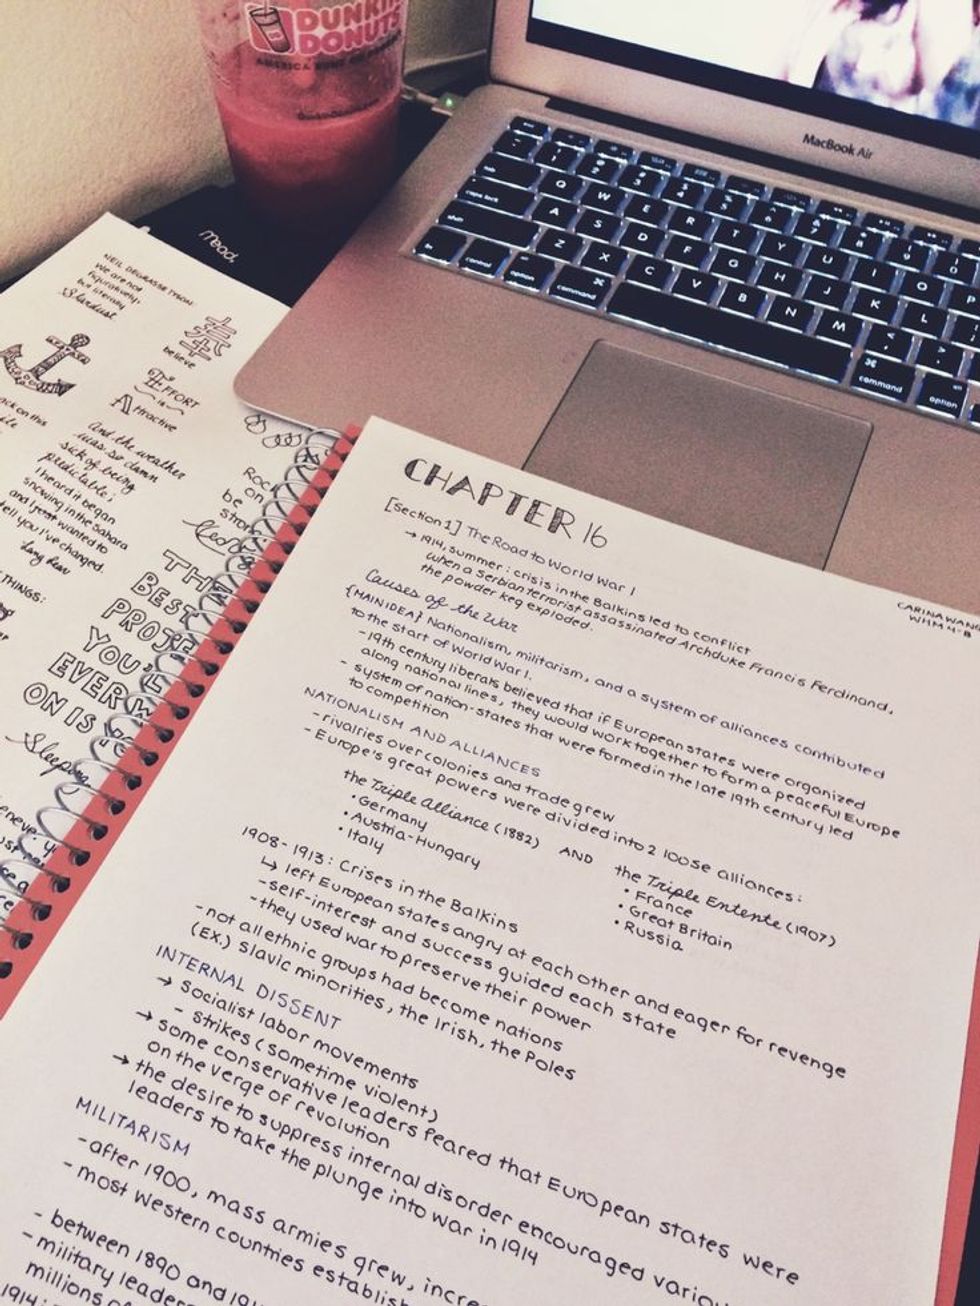 DUNKIN'
DONUTS
MacBook Air
mood
NEIL DEGRASSE TYSON
We are not
figuratively,
but literally
Stardust
believe
EFFORT
is
Attractive
ack on this
And the weather
was so damn
sick of being
predictable;
I heard it began
snowing in the Sahara
and I just wanted to
tell you I've changed.
THINGS:
be
strong
BEST
PROJE
YOU'LL
EVER W
ON IS
CHAPTER 16
CARINA WANG
[Section 1] The Road to World War 1
→ 1914, summer: crisis in the Balkins led to conflict
when a Serbian terrorist assassinated Archduke Francis Ferdinand,
the powder keg exploded.
Causes of the War
{MAIN IDEA} Nationalism, militarism, and a system of alliances contributed
to the start of World War I.
- 19th century liberals believed that if European states were organized
along national lines, they would work together to form a peaceful Europe
- system of nation-states that were formed in the late 19th century led
to competition
NATIONALISM AND ALLIANCES
- rivalries over colonies and trade grew
- Europe's great powers were divided into 2 loose alliances:
the Triple Alliance (1882) AND the Triple Entente (1907)
• Germany
• Austria-Hungary
• Italy
• France
• Great Britain
• Russia
1908-1913: Crises in the Balkins
↳ left European states angry at each other and eager for revenge
- self-interest and success guided each state
- they used war to preserve their power
- not all ethnic groups had become nations
(EX.) Slavic minorities, the Irish, the Poles
INTERNAL DISSENT
→ Socialist labor movements
- strikes (sometime violent)
→ some conservative leaders feared that European states were
on the verge of revolution
→ the desire to suppress internal disorder encouraged various
leaders to take the plunge into war in 1914
MILITARISM
- after 1900, mass armies grew,
- most Western countries
- between 1890 and
- military
millions
1914:
tab
caps lock
shift
fn
control
option
command
Q W E R T Y U I O P
A S D F G H J K L
Z X C V B N M
command
option